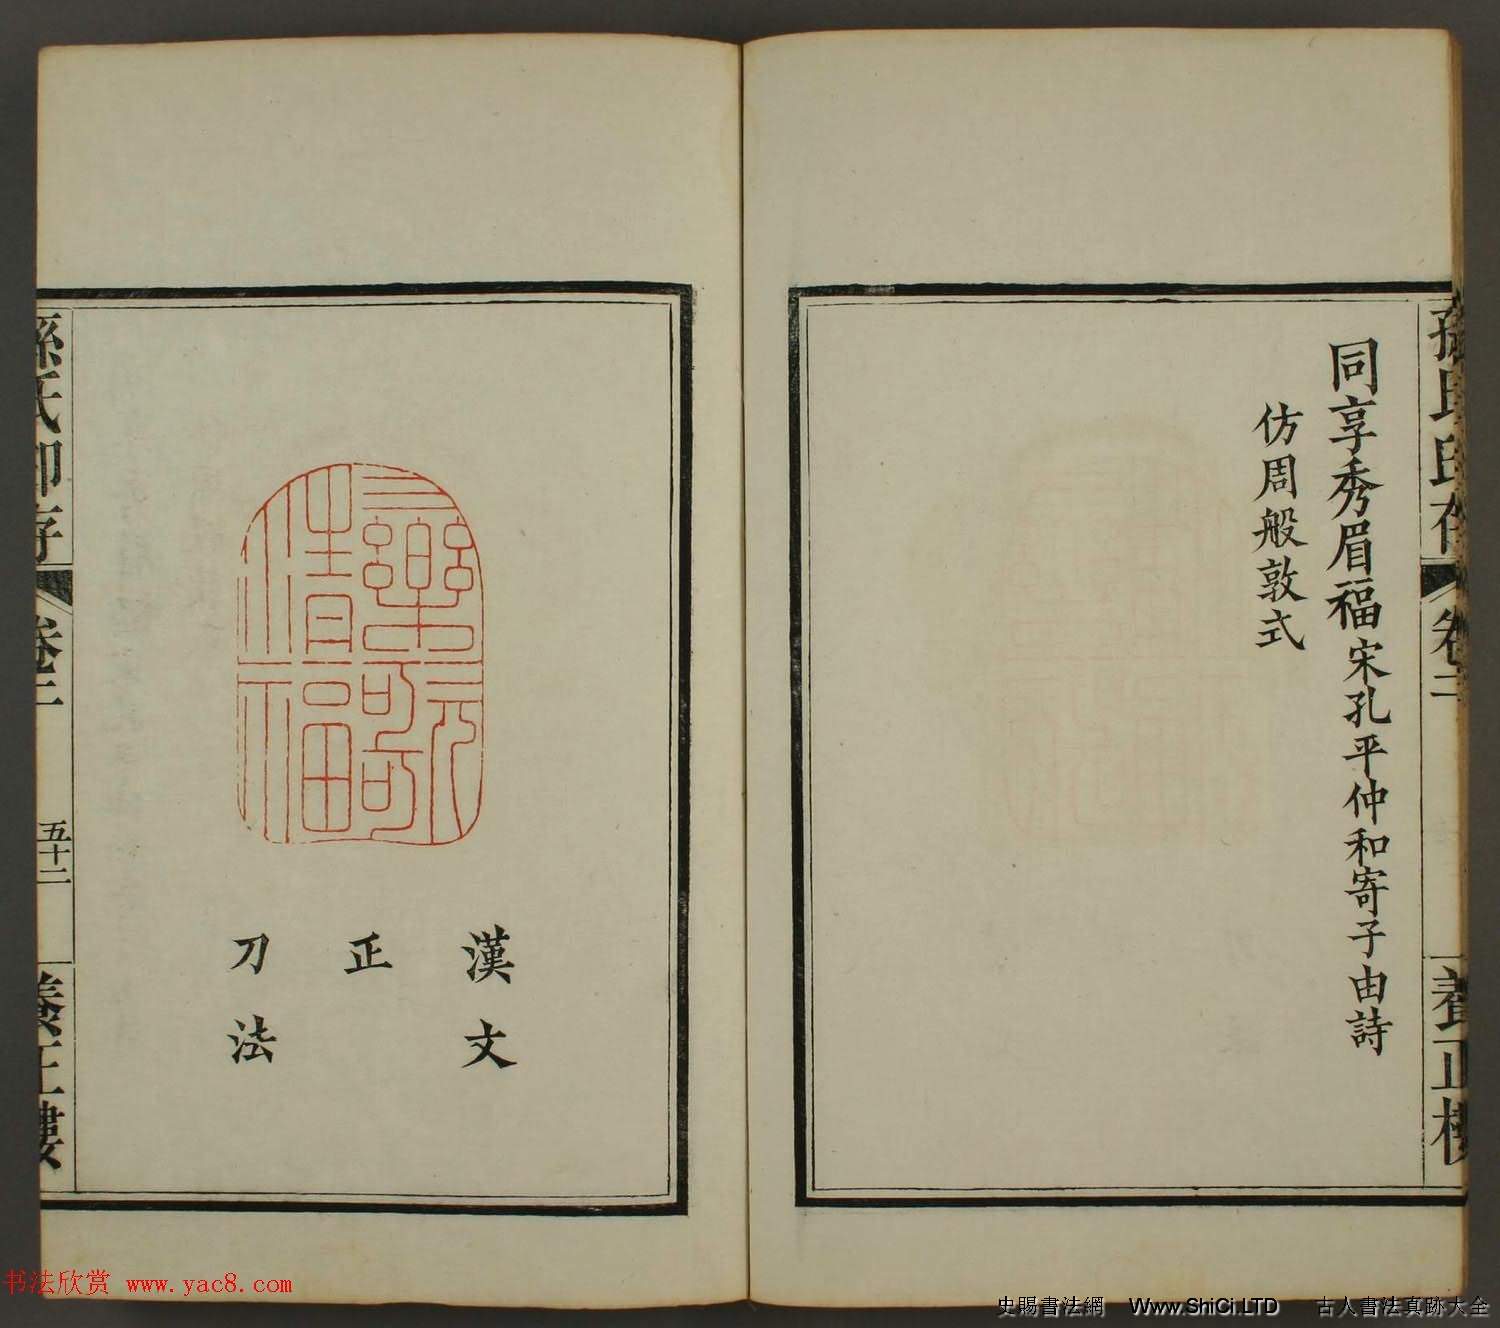 孫氏印存
卷二
養正樓
同享秀眉福宋孔平仲和寄子由詩
仿周般敦式
漢文
正
刀法
孫氏印存
卷二
五十二
養正樓
书法欣赏 www.yac8.com
史賜書法網 Www.ShiCi.LTD 古人書法真跡大全